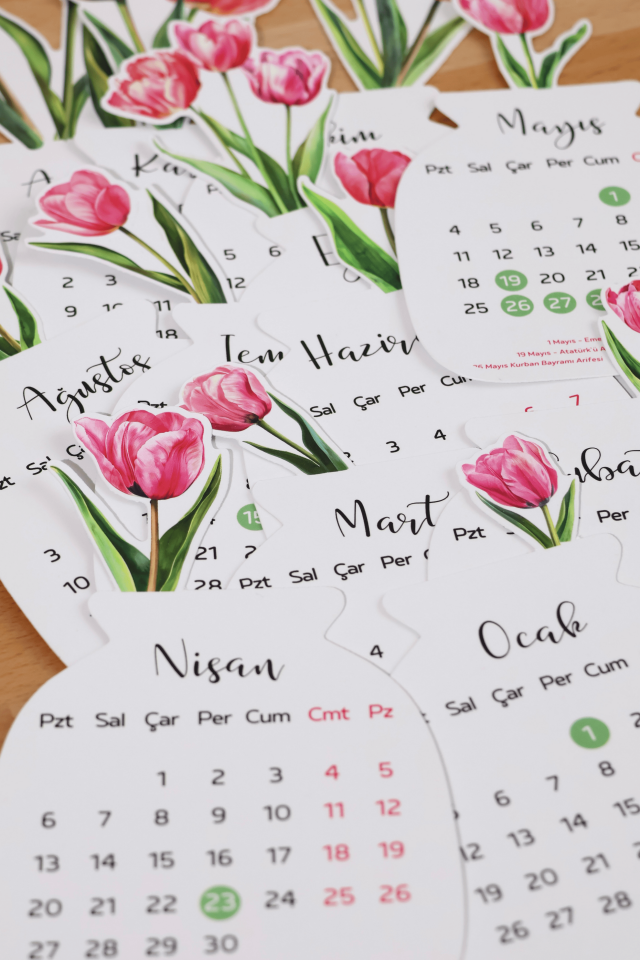 Mayıs
Pzt Sal Çar Per Cum
1
4 5 6 7 8
11 12 13 14 15
18 19 20 21
25 26 27
1 Mayıs - Eme
19 Mayıs - Atatürk'ü A
26 Mayıs Kurban Bayramı Arifesi
5 6
12
2 3
9 10 11
18
Ağustos
Tem
Haziran
Sal Çar Per Cum
6 7
3 4
15
21
28
3
10
Mart
Pzt Sal Çar Per
4
Pzt
Per
Nisan
Pzt Sal Çar Per Cum Cmt Pz
1 2 3 4 5
6 7 8 9 10 11 12
13 14 15 16 17 18 19
20 21 22 23 24 25 26
27 28 29 30
Ocak
Sal Çar Per Cum
1
6 7 8
12 13 14 15
19 20 21
26 27 28